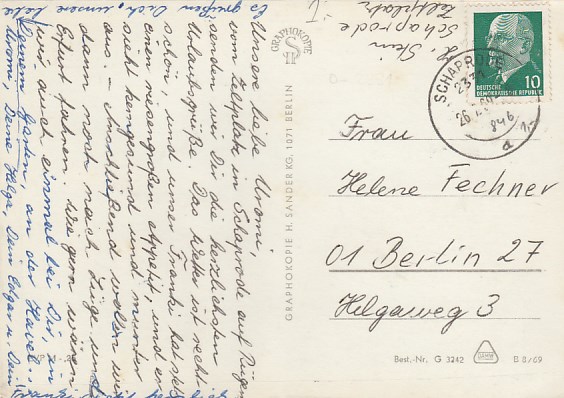 H. Stein
Schaprode
Zeltplatz
Unsere liebe Uromi,
vom Zeltplatz in Schaprode auf Rügen
senden wir Dir die herzlichsten
Urlaubsgrüße. Das Wetter ist recht
schön, und unser Frank hat stets
einen riesengroßen Appetit, und er
sieht kerngesund und munter
aus. – Anschließend wollen wir
dann noch nach Zinge und
Erfurt fahren. Wie gern wären
wir erst einmal bei Dir, in
Deinem Garten, an der Havel.
Es grüßen Dich, unsere liebe
Uromi, Deine Helga, Dein Edgar u. Dein
GRAPHOKOPIE
GRAPHOKOPIE H. SANDER KG, 1071 BERLIN
DEUTSCHE
DEMOKRATISCHE REPUBLIK
10
SCHAPRODE
2331
Frau
Helene Fechner
01 Berlin 27
Helgaweg 3
Best.-Nr. G 3242
B 8/69